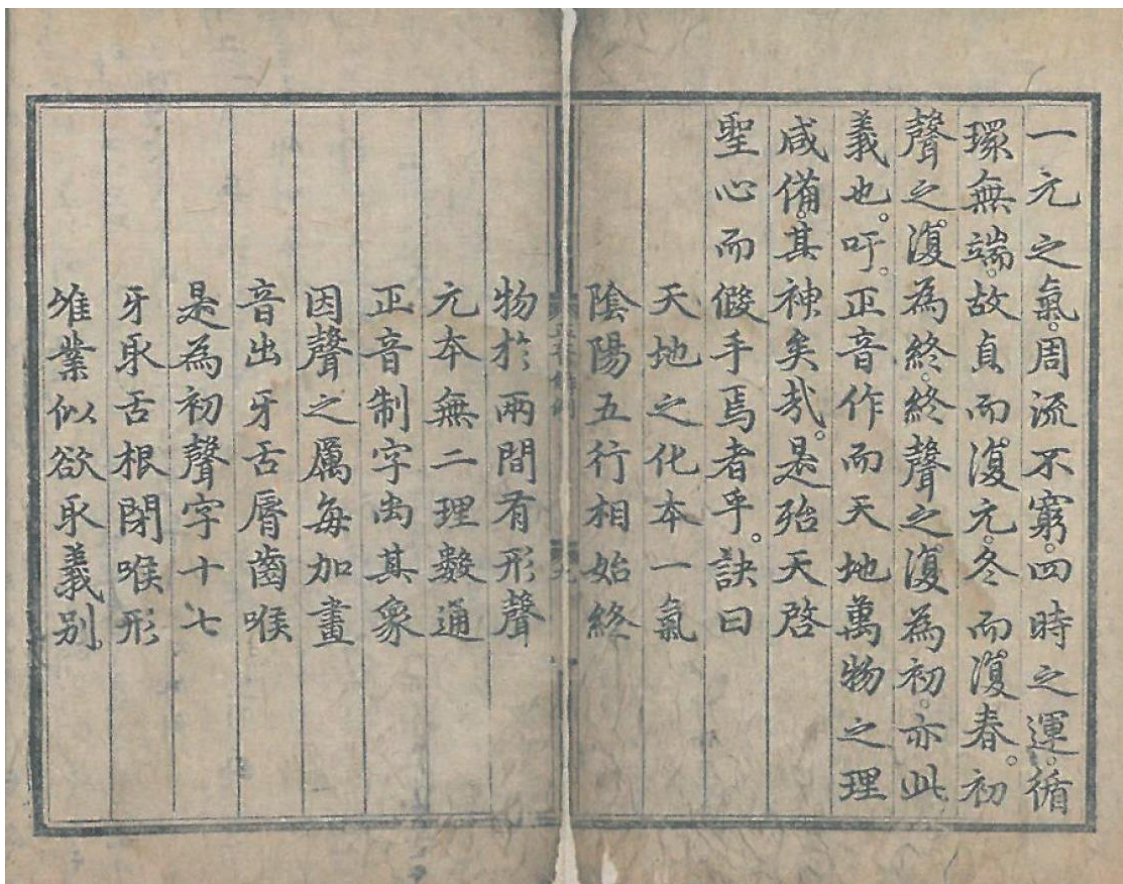 一元之氣。周流不窮。四時之運。循
環無端。故貞而復元。冬而復春。初
聲之復為終。終聲之復為初。亦此
義也。吁。正音作而天地萬物之理
咸備。其神矣哉。是殆天啓
聖心而假手焉者乎。訣曰
天地之化本一氣
陰陽五行相始終
物於兩間有形聲
元本無二理數通
正音制字尚其象
因聲之厲每加畫
音出牙舌脣齒喉
是為初聲字十七
牙取舌根閉喉形
唯業似欲取義別。